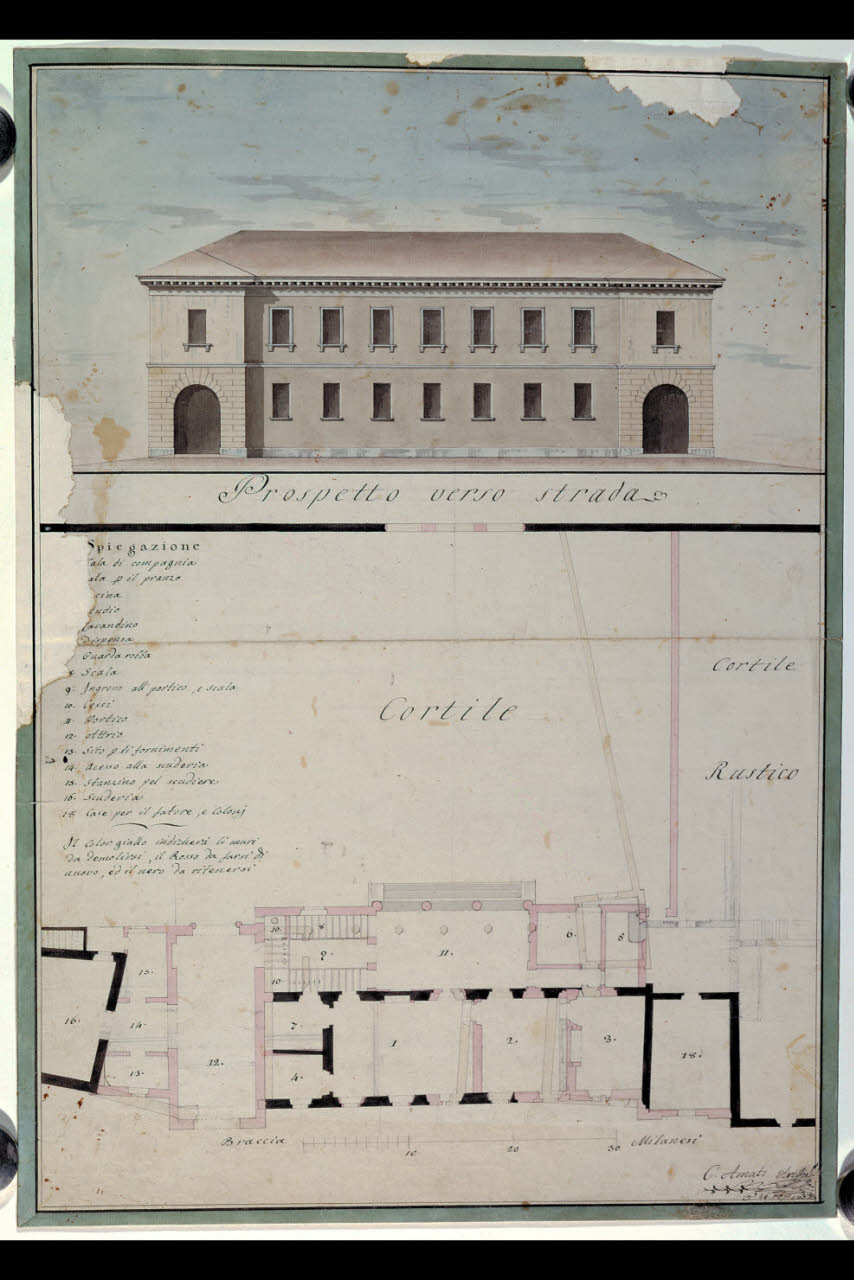 Prospetto verso strada
Spiegazione
Sala di compagnia
ala p il pranzo
cina
tudio
Lavandino
Dispensa
Guarda robba
8. Scala
9. Ingresso all'portico, e scala
10. Cessi
11. Portico
12. Attrio
13. Sito p li fornimenti
14. Acesso alla scuderia
15. Stanzino pel scudiere
16. Scuderia
Case per il fatore, e
Il color giallo indicherà li muri
da demolirsi, il Rosso da farsi di
nuovo, ed il nero da ritenersi
Cortile
Cortile
Rustico
10.
8
9.
10
11.
6.
5
16.
15.
14.
13.
12.
7.
4.
1
2.
3.
18.
Braccia
10
20
30
Milanesi
C. Amati